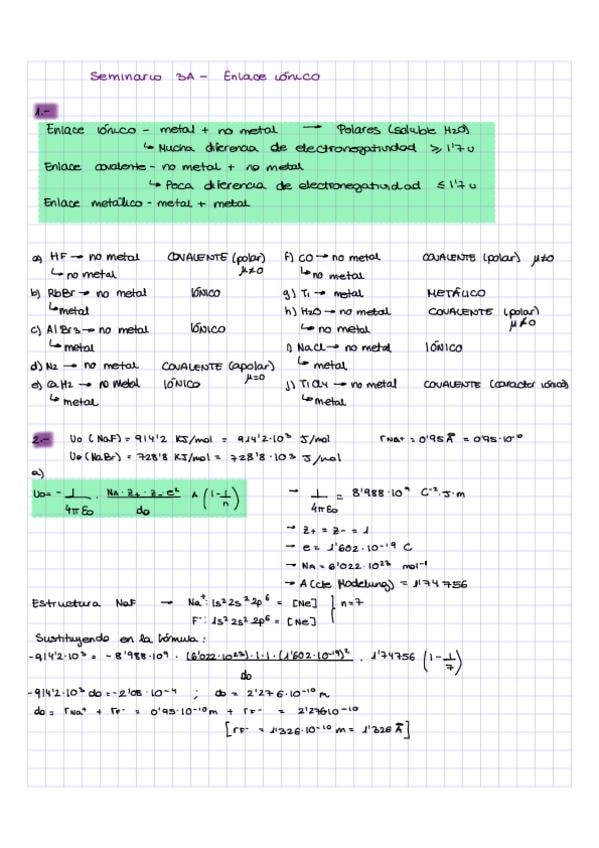 Seminario 3A - Enlace iónico
1.-
Enlace iónico - metal + no metal → Polares (soluble H2O)
↳ Mucha diferencia de electronegatividad ⩾ 1'7 u
Enlace covalente - no metal + no metal
↳ Poca diferencia de electronegatividad ≤ 1'7 u
Enlace metálico - metal + metal
a) HF → no metal COVALENTE (polar) μ≠0
↳ no metal
b) RbBr → no metal IÓNICO
↳ metal
c) AlBr3 → no metal IÓNICO
↳ metal
d) N2 → no metal COVALENTE (apolar) μ=0
e) CaH2 → no metal IÓNICO
↳ metal
f) CO → no metal COVALENTE (polar) μ≠0
↳ no metal
g) Ti → metal METÁLICO
h) H2O → no metal COVALENTE (polar) μ≠0
↳ no metal
i) NaCl → no metal IÓNICO
↳ metal
j) TiCl4 → no metal COVALENTE (caracter iónico)
↳ metal
2.- Uo (NaF) = 914'2 KJ/mol = 914'2·10³ J/mol rNa+ = 0'95 Å = 0'95·10⁻¹⁰
Uo (NaBr) = 728'8 KJ/mol = 728'8·10³ J/mol
a)
Uo = - 1/4πεo · NA·Z+·Z-·e²/do A (1 - 1/n)
→ 1/4πεo = 8'988·10⁹ C⁻²·J·m
→ Z+ = Z- = 1
→ e = 1'602·10⁻¹⁹ C
→ NA = 6'022·10²³ mol⁻¹
→ A (cte Madelung) = 1'74756
Estructura NaF → Na⁺: 1s² 2s² 2p⁶ = [Ne] } n=7
F⁻: 1s² 2s² 2p⁶ = [Ne]
Sustituyendo en la fórmula:
-914'2·10³ = -8'988·10⁹ · (6'022·10²³)·1·1·(1'602·10⁻¹⁹)²/do · 1'74756 (1 - 1/7)
-914'2·10³ do = -2'08·10⁻⁴ ; do = 2'276·10⁻¹⁰ m
do = rNa+ + rF- = 0'95·10⁻¹⁰ m + rF- = 2'276·10⁻¹⁰
[rF- = 1'326·10⁻¹⁰ m = 1'326 Å]